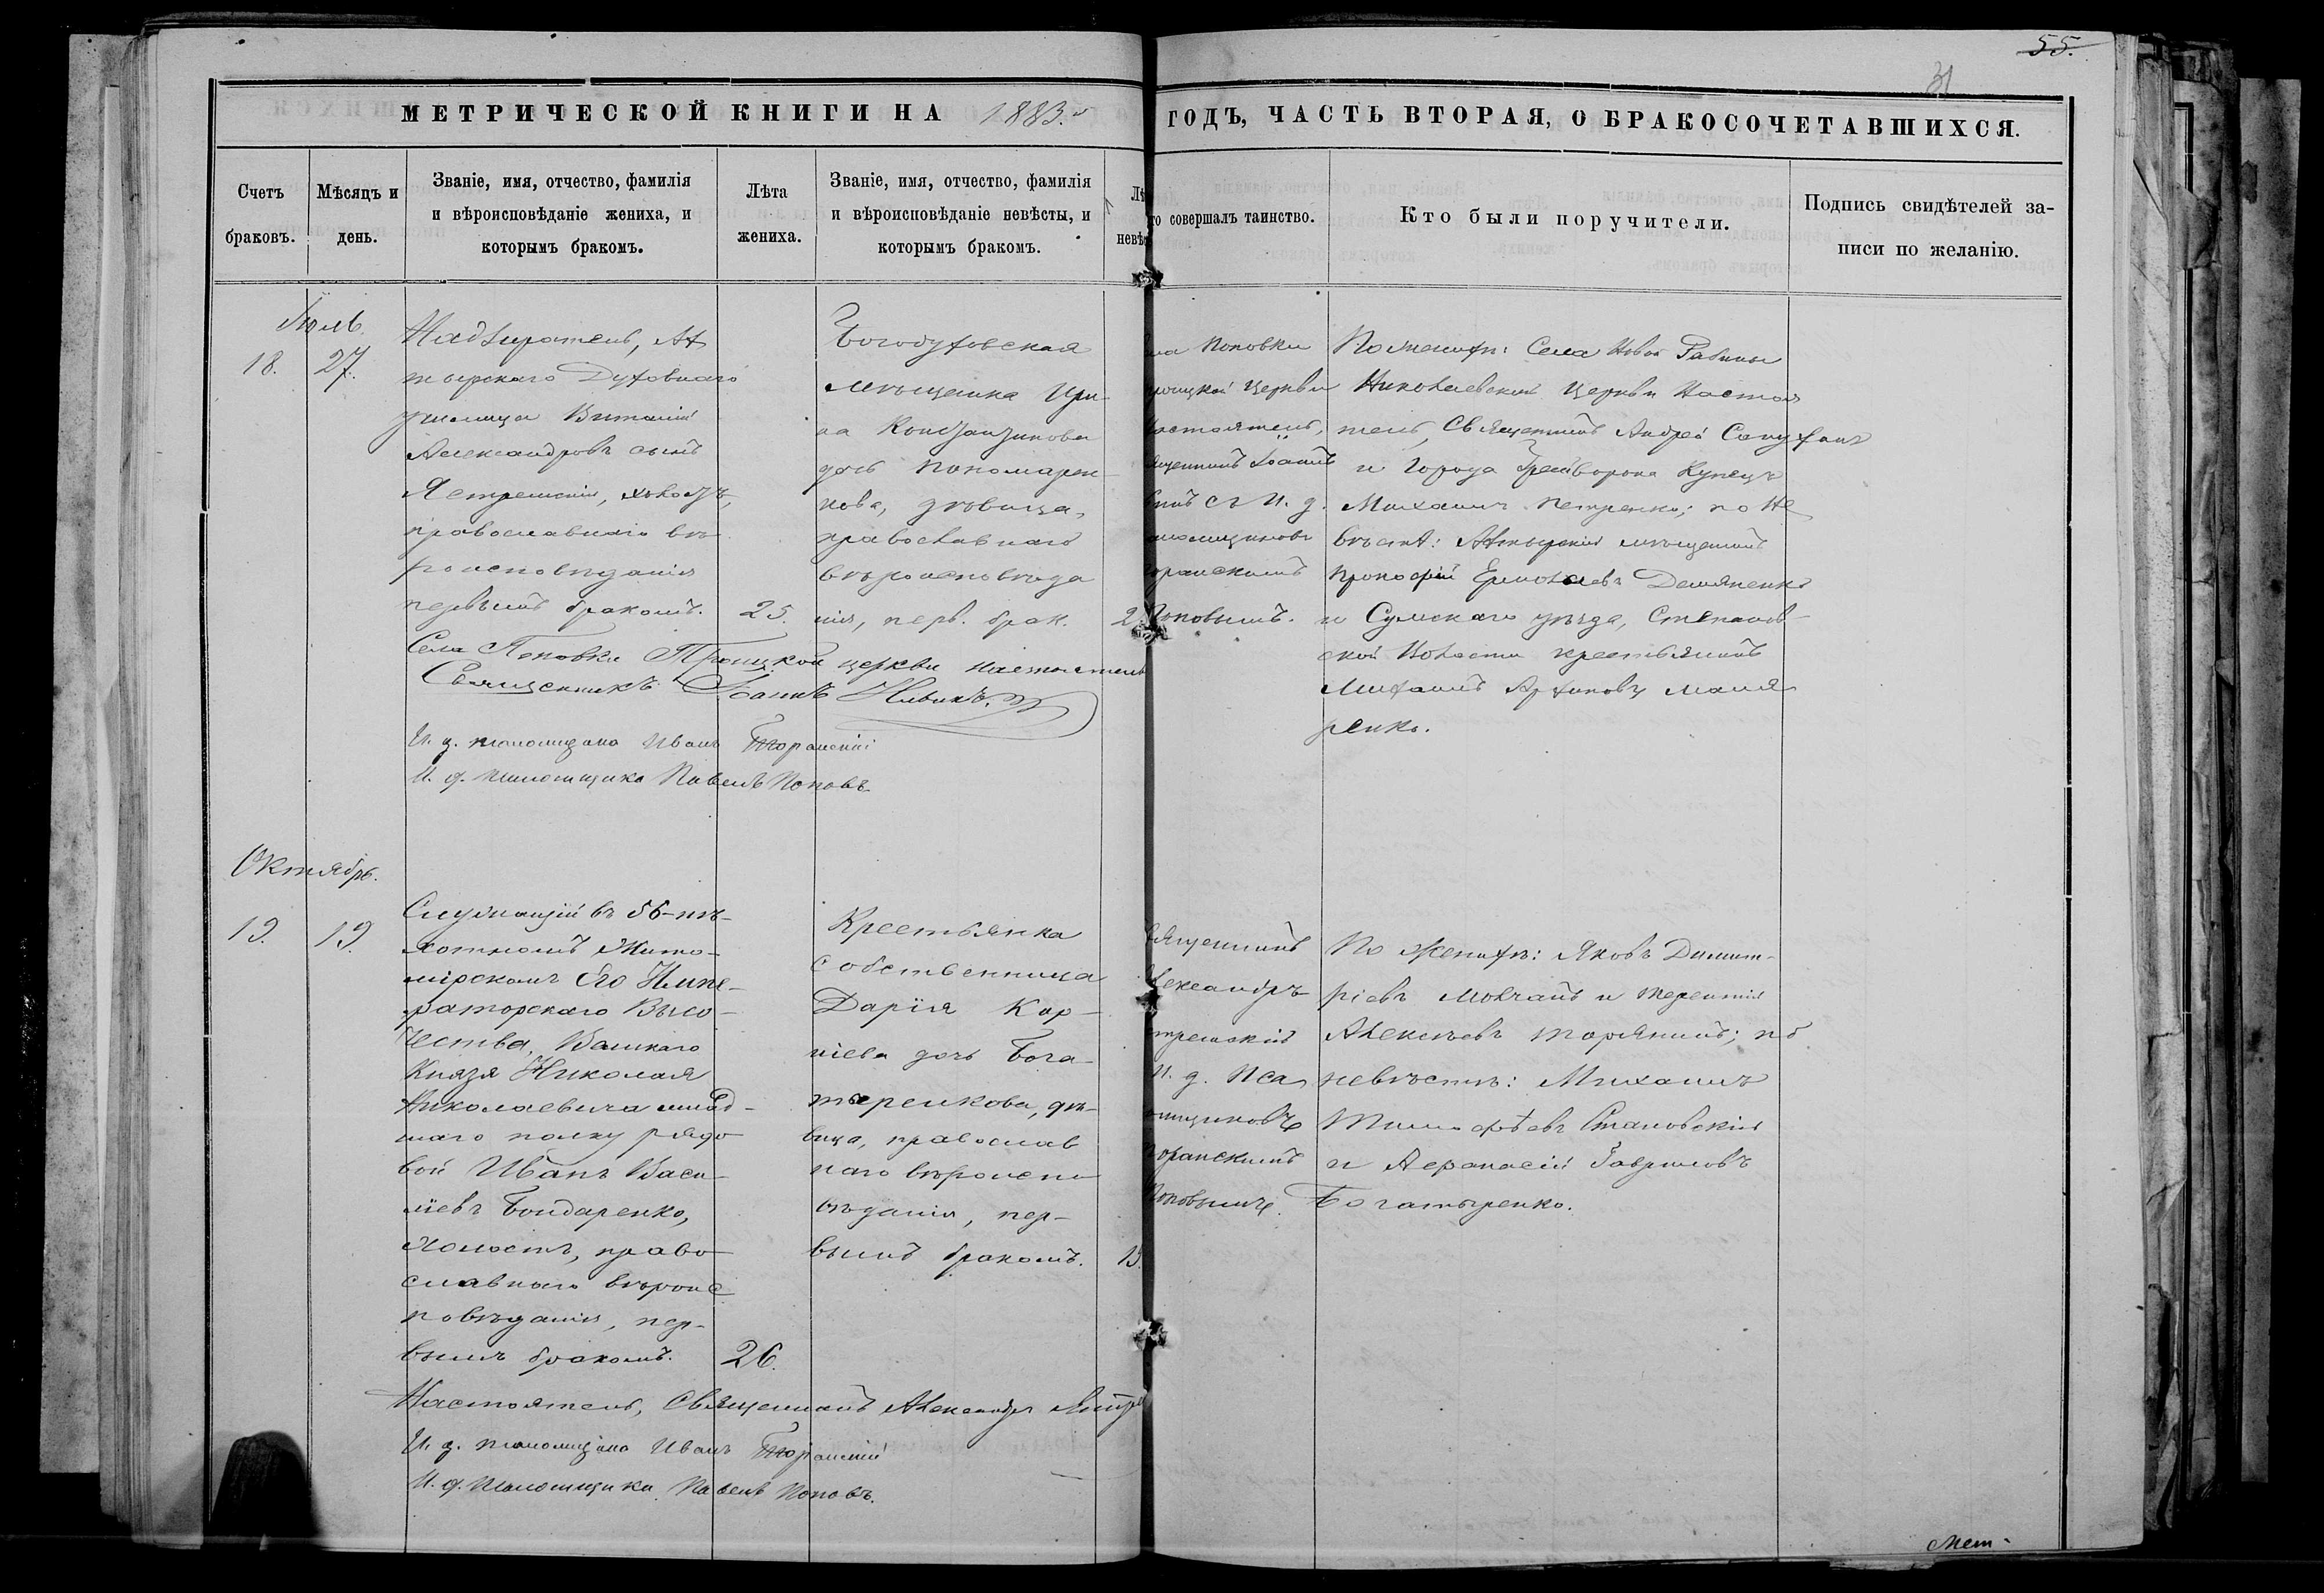 55.
31
МЕТРИЧЕСКОЙ КНИГИ НА 1883.й ГОДЪ, ЧАСТЬ ВТОРАЯ, О БРАКОСОЧЕТАВШИХСЯ.
Счетъ браковъ.
Мѣсяцъ и день.
Званіе, имя, отчество, фамилія
и вѣроисповѣданіе жениха, и
которымъ бракомъ.
Лѣта
жениха.
Званіе, имя, отчество, фамилія
и вѣроисповѣданіе невѣсты, и
которымъ бракомъ.
Лѣ
невѣс
го совершалъ таинство.
Кто были поручители.
Подпись свидѣтелей за-
писи по желанію.
Іюль.
18. 27.
Надзиратель, Ах
тырскаго Духовнаго
училища Виталій
Александровъ сынъ
Ястремскій, холостъ,
православнаго вѣ
роисповѣданія
первымъ бракомъ.
25.
Богодуховская
мѣщанка Ири-
на Константинова
дочь Пономарен-
кова, дѣвица,
православнаго
вѣроисповѣда
нія, перв. брак.
2
ла Поповки
роицкой Церкви
Настоятель,
ященникъ Іоаннъ
винъ съ И. д.
аломщиковъ
горанскимъ
Поповымъ.
По женихѣ: Села Новой Рабины
Николаевской Церкви Настоя
тель, Священникъ Андрей
и Города Грайворона Купецъ
Михаилъ Петренко; по Не
вѣстѣ: Ахтырскій мѣщанинъ
Прокофій Ермолаевъ Демяненко
и Сумскаго уѣзда, Степанов-
ской Волости крестьянинъ
Михаилъ Архиповъ Маля
ренко.
Села Поповки Троицкой церкви настоятель
Священникъ Іоаннъ
И. д. псаломщика Иванъ
И. д. псаломщика Павелъ Поповъ
Октябрь.
19. 19.
Служащій въ 56-пѣ-
хотномъ Жито-
мірскомъ Его Импе-
раторскаго Высо-
чества, Великаго
Князя Николая
Николаевича млад-
шаго полку рядо
вой Иванъ Васи-
ліевъ Бондаренко,
холостъ, право
славнаго вѣроис
повѣданія, пер-
вымъ бракомъ.
26.
Крестьянка
собственница
Дарія Кор-
ніева дочь Бога-
тыренкова, дѣ-
вица, православ
наго вѣроиспо
вѣданія, пер-
вымъ бракомъ.
19.
вященникъ
Александръ
тремскій
И. д. Пса
омщиковъ
горанскимъ
Поповымъ.
По Женихѣ: Яковъ Димит-
ріевъ Молчанъ и Терентій
Алексѣевъ Торяникъ; по
невѣстѣ: Михаилъ
Тимофѣевъ Становскій
и Афанасій Гавриловъ
Богатыренко.
Настоятель, Священникъ Александръ
И. д. псаломщика Иванъ
И. д. Псаломщика Павелъ Поповъ.
Мет-